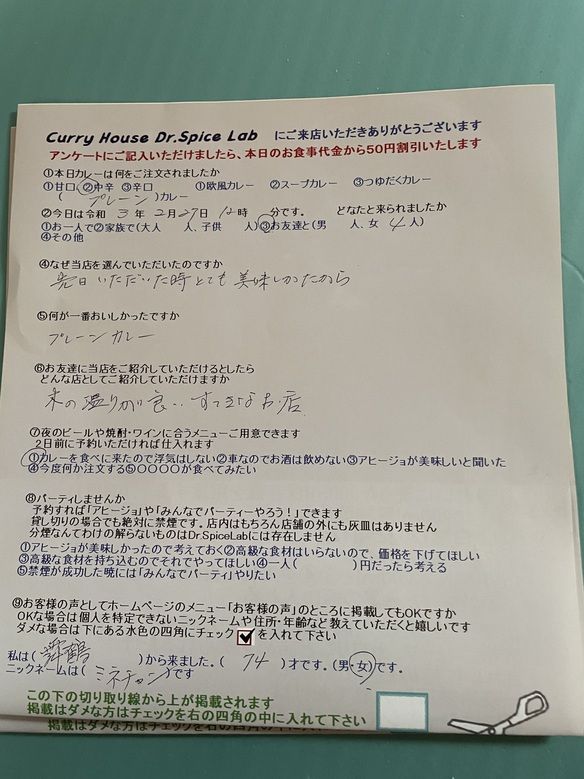 Curry House Dr.Spice Lab にご来店いただきありがとうございます
アンケートにご記入いただけましたら、本日のお食事代金から50円割引いたします
①本日カレーは何をご注文されましたか
①甘口 ②中辛 ③辛口 ①欧風カレー ②スープカレー ③つゆだくカレー
( プレーン )カレー
②今日は令和 3 年 2月27日 12時 分です。 どなたと来られましたか
①お一人で②家族で(大人 人、子供 人)③お友達と(男 人、女 4人)
④その他
④なぜ当店を選んでいただいたのですか
先日いただいた時とても美味しかたから
⑤何が一番おいしかったですか
プレーンカレー
⑥お友達に当店をご紹介していただけるとしたら
どんな店としてご紹介していただけますか
木の温りが良い、すてきなお店
⑦夜のビールや焼酎・ワインに合うメニューご用意できます
2日前に予約いただければ仕入れます
①カレーを食べに来たので浮気はしない②車なのでお酒は飲めない③アヒージョが美味しいと聞いた
④今度何か注文する⑤〇〇〇〇が食べてみたい
⑧パーティしませんか
予約すれば「アヒージョ」や「みんなでパーティーやろう!」できます
貸し切りの場合でも絶対に禁煙です。店内はもちろん店舗の外にも灰皿はありません
分煙なんてわけの解らないものはDr.SpiceLabには存在しません
①アヒージョが美味しかったので考えておく②高級な食材はいらないので、価格を下げてほしい
③高級な食材を持ち込むのでそれでやってほしい④一人( )円だったら考える
⑤禁煙が成功した暁には「みんなでパーティ」やりたい
⑨お客様の声としてホームページのメニュー「お客様の声」のところに掲載してもOKですか
OKな場合は個人を特定できないニックネームや住所・年齢など教えていただくと嬉しいです
ダメな場合は下にある水色の四角にチェック を入れて下さい
私は( 舞鶴 )から来ました。( 74 )才です。(男・女)です。
ニックネームは( ミネチャン )です
この下の切り取り線から上が掲載されます
掲載はダメな方はチェックを右の四角の中に入れて下さい
掲載はダメな方はチェックを右の四角の中に入